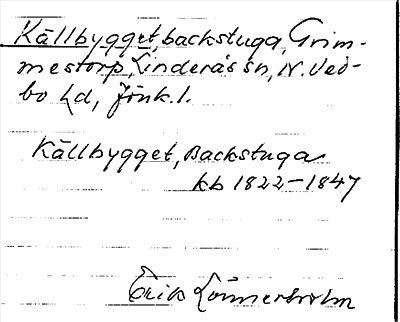 Källbygget, backstuga, Grim-
mestorp, Linderås sn, N. Ved-
bo hd, Jönk. l.
Källbygget, Backstuga
kb 1822-1847
Erik Lönnerholm